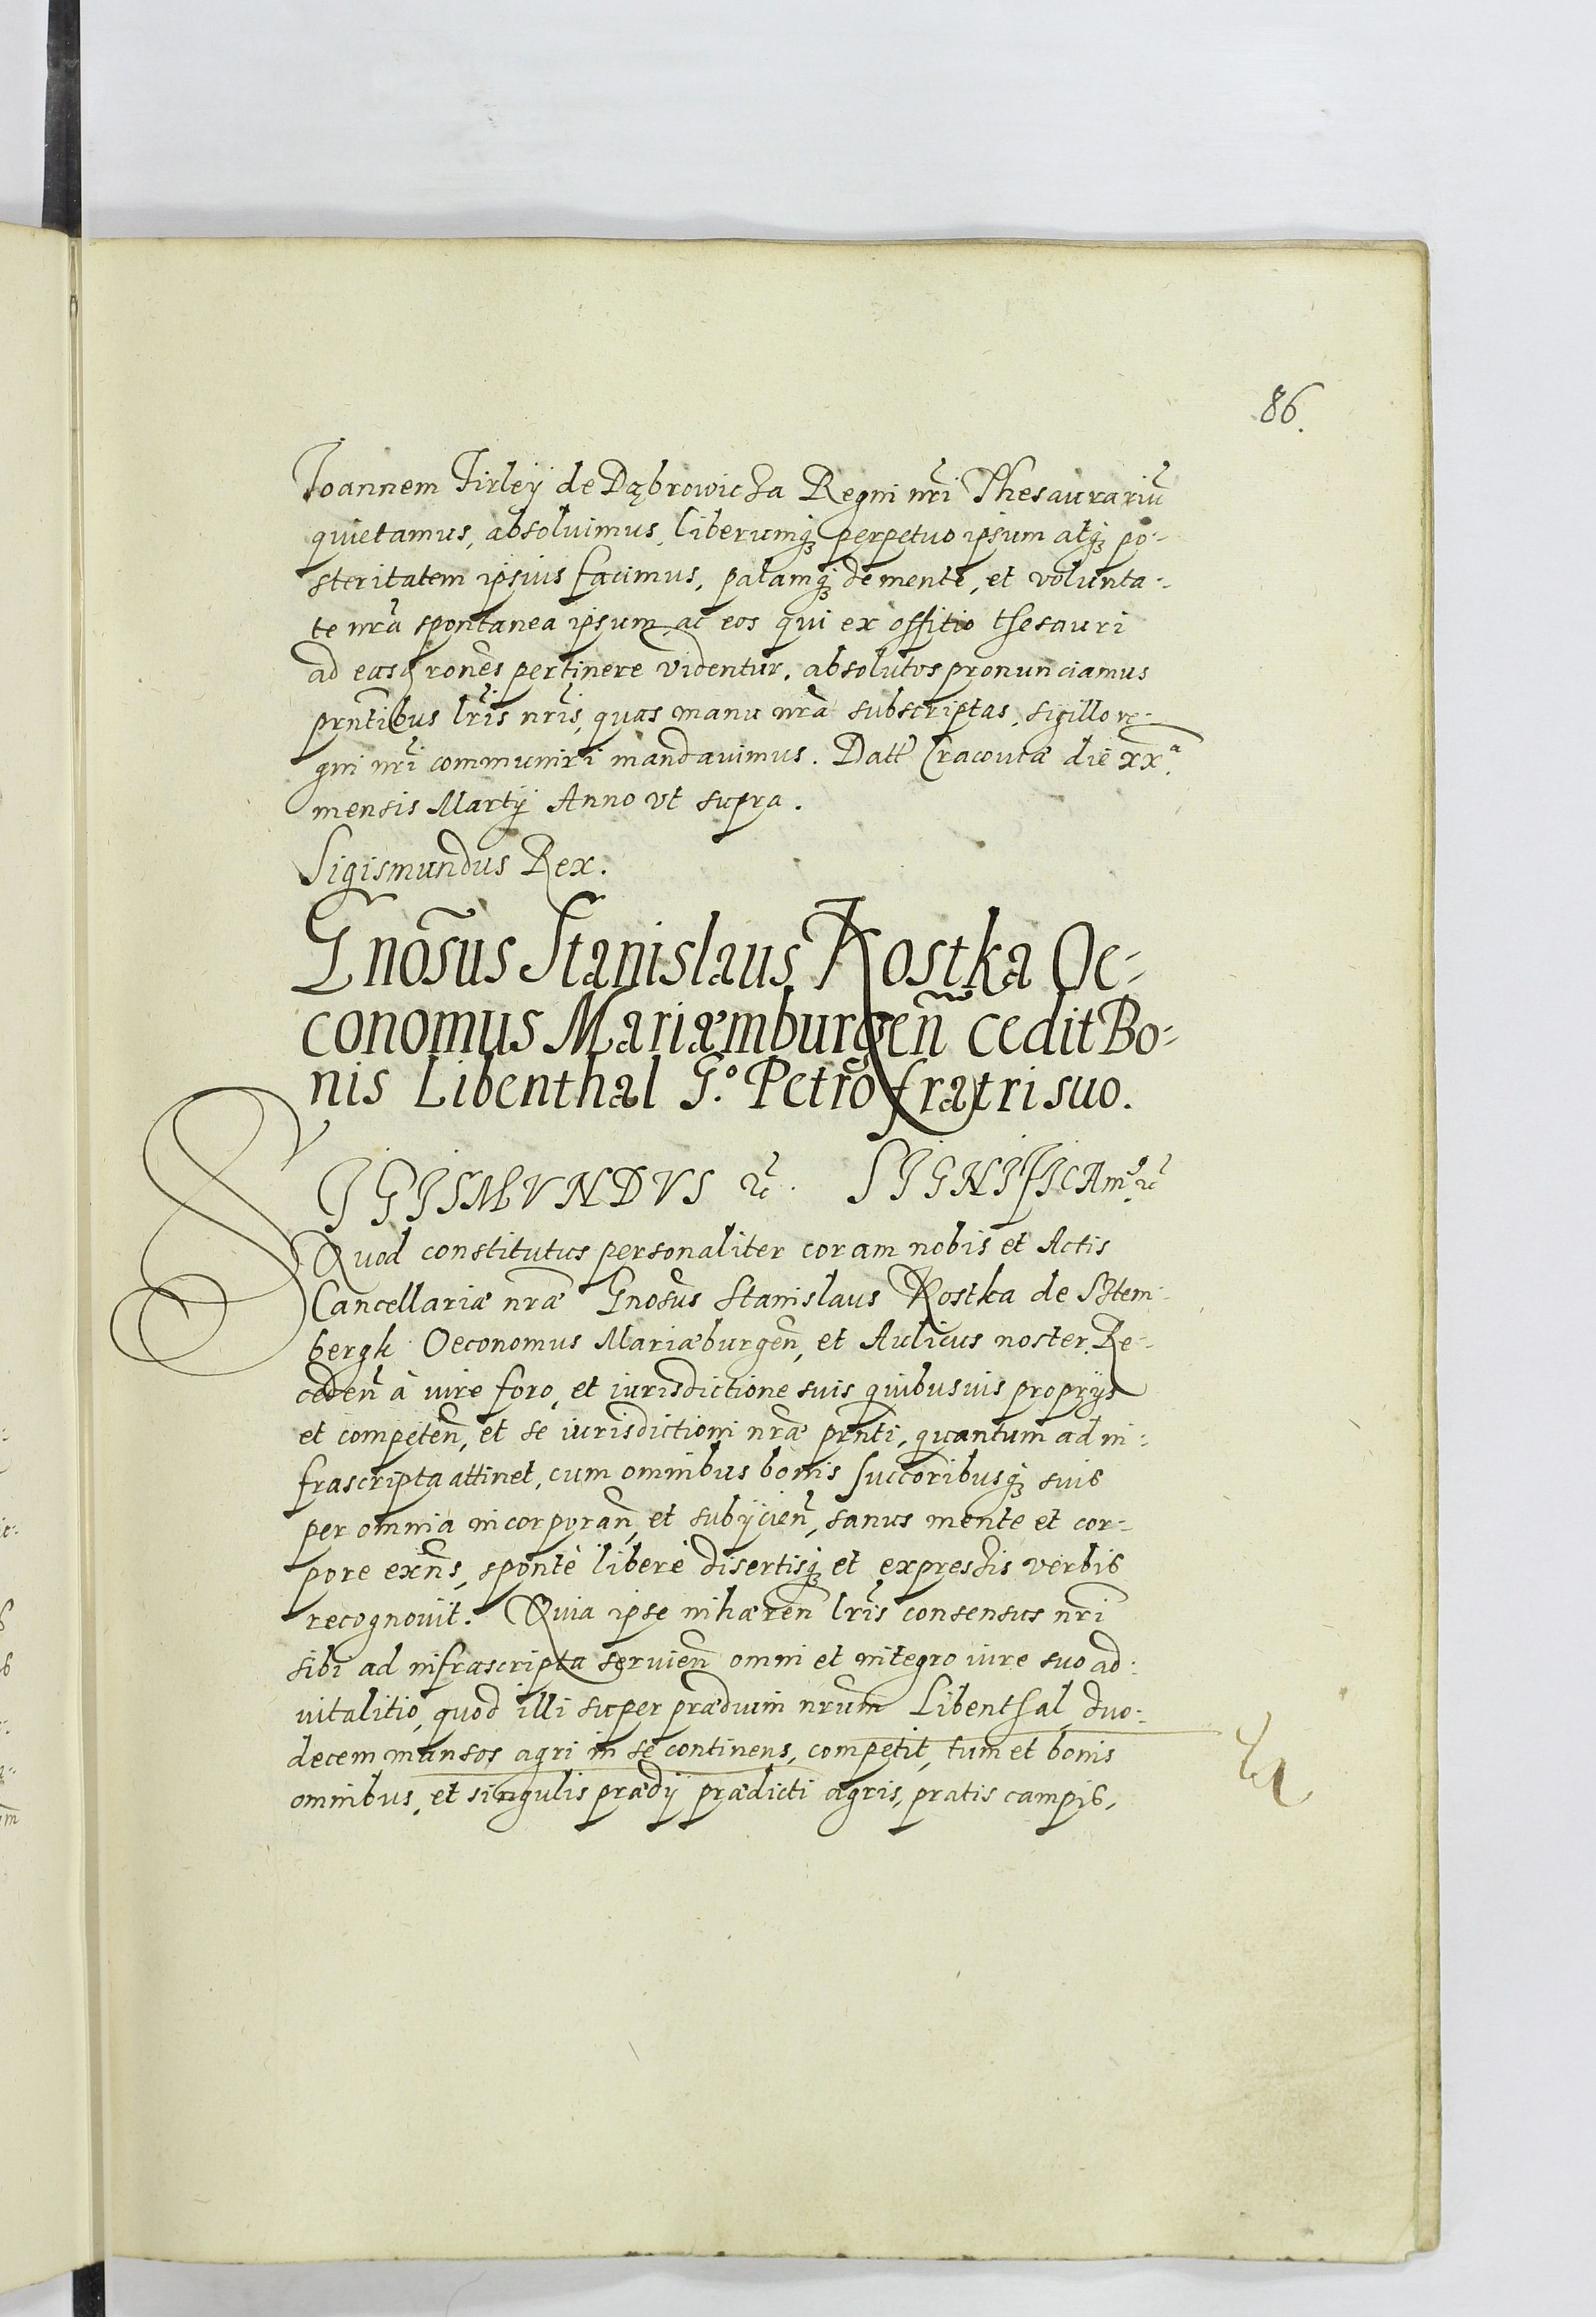 86.
Joannem Firley de Dąbrowicza Regni nr̃i Thesaurariũ
quietamus, absoluimus, liberumq́ꝫ perpetuo ipsum atq́ꝫ po-
steritatem ipsius facimus, palamq́ꝫ de mente, et volunta-
te nr̃a spontanea ipsum ac eos qui ex offitio thesauri
ad eas rones pertinere videntur, absolutos pronunciamus
prñtibus lr̃is nr̃is, quas manu nr̃a subscriptas, sigillo re-
gni nr̃i communiri mandauimus. Datt Cracouiæ die xxᵃ.
mensis Martij Anno vt supra.
Sigismundus Rex.
Gnõsus Stanislaus Kostka Oe-
conomus Mariæmburgeñ cedit Bo-
nis Libenthal G.º Petro fratri suo.
SIGISMVNDVS ꝛc̃. SIGNIFICAmꝰ ꝛc̃
Quod constitutus personaliter coram nobis et Actis
Cancellariæ nr̃æ Gnosũs Stanislaus Kostka de Stem-
bergk Oeconomus Mariæburgeñ, et Aulicus noster. Re-
cedeñ à iure foro, et iurisdictione suis quibusuis proprijs
et competeñ, et se iurisdictioni nr̃æ prñti, quantum ad in-
frascripta attinet, cum omnibus bonis succoribusq́ꝫ suis
per omnia incorporañ, et subijcieñ, sanus mente et cor-
pore exñs, spontè liberè disertisq́ꝫ et expressis verbis
recognouit. Quia ipse inhæreñ lr̃is consensus nr̃i
sibi ad infrascripta seruieñ omni et integro iure suo ad-
uitalitio, quod illi super prædium nrũm Libenthal duo-
decem mansos agri in se continens, competit, tum et bonis
omnibus, et singulis prædij prædicti agris, pratis campis,